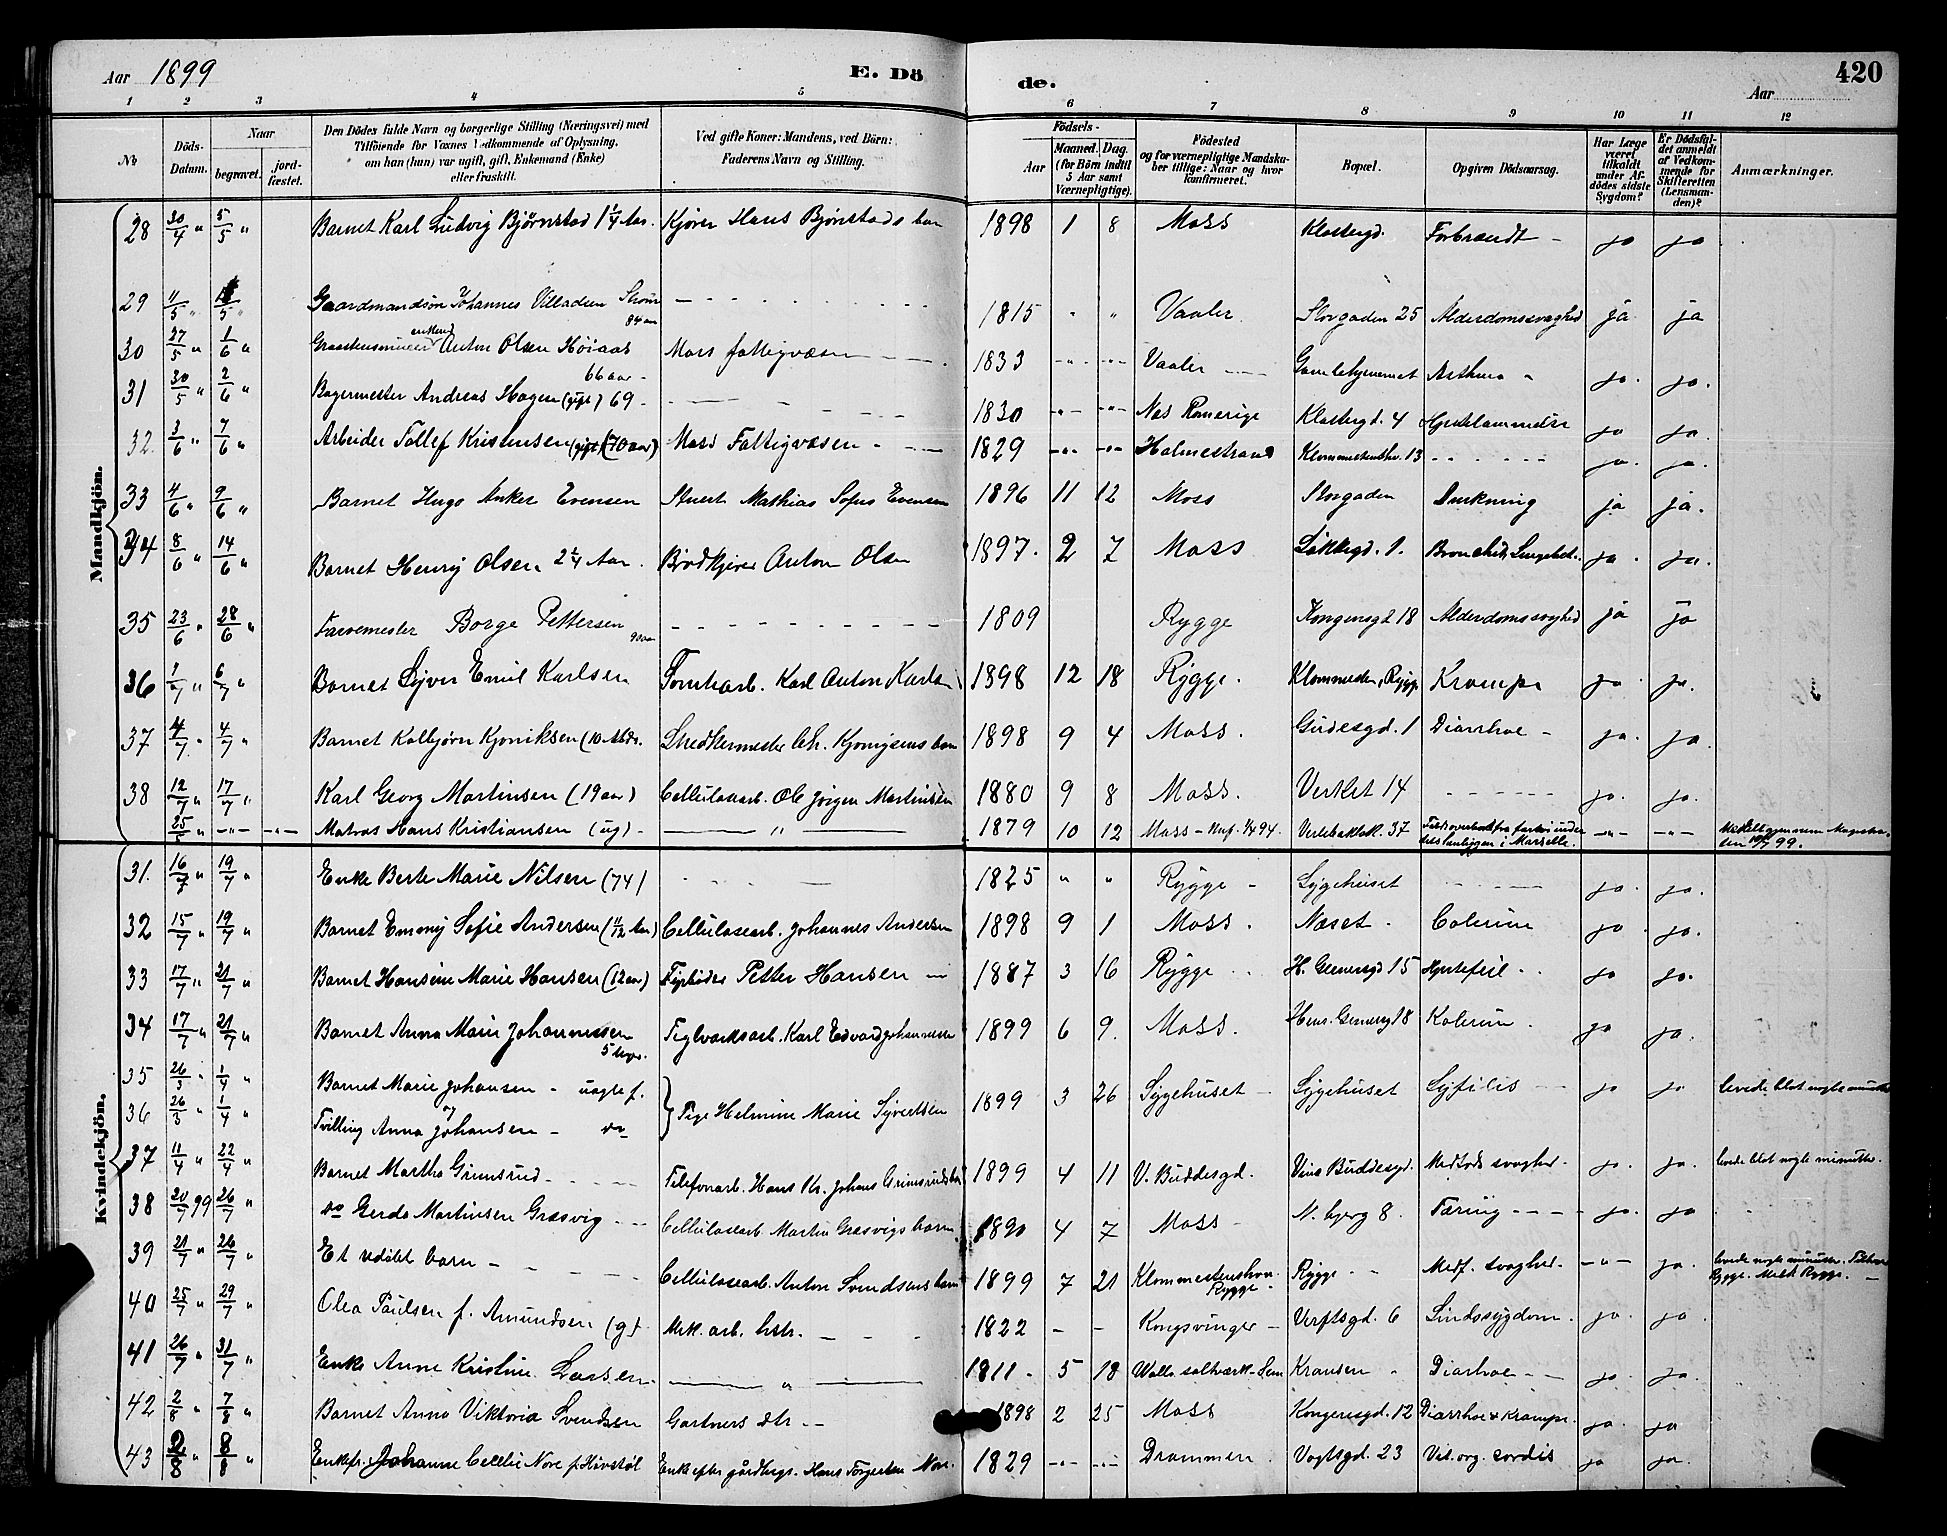 Aar 1899
E. Dö
de.
Aar
420
1 2 3 4 5 6 7 8 9 10 11 12
No
Döds-Datum.
Naar
begravet.
jord-fæstet.
Den Dödes fulde Navn og borgerlige Stilling (Næringsvei) med
Tilföiende for Voxnes Vedkommende af Oplysning,
om han (hun) var ugift, gift, Enkemand (Enke)
eller fraskilt.
Ved gifte Koner: Mandens, ved Börn:
Faderens Navn og Stilling.
Födsels-
Aar
Maaned. Dag.
(for Börn indtil 5 Aar samt Værnepligtige).
Födested
og for værnepligtige Mandska-
ber tillige: Naar og hvor
konfirmeret.
Bopæl.
Opgiven Dödsaarsag.
Har Læge været tilkaldt under Af-dödes sidste Sygdom?
Er Dödsfal-det anmeldt af Vedkom-mende for Skifteretten (Lensman-den)?
Anmærkninger.
Mandkjön.
28 30/4 " 5/5 " Barnet Karl Ludvig Bjørnstad 1 1/4 Aar. Kjører Hans Bjørnstads barn 1898 1 8 Moss Klostergd. Forbrændt - ja ja
29 11/5 " /5 " Gaardmandsøn Johannes Villadsen Strøm 84 aar 1815 " " Vaaler Storgaden 25 Alderdomssvaghed ja ja
30 27/5 " 1/6 " enkem Anton Olsen Høiaas 66 aar - Moss fattigvæsen 1833 Vaaler Gamlehjemmet Asthma " ja. ja.
31 30/5 " 2/6 " Bagermester Andreas Hagen (gift) 69 - 1830 Nes Romerige Klostergd. 4 ja ja.
32. 3/6 " 7/6 " Arbeider Tollef Kristensen (gift) (70 aar) Moss Fattigvæsen - 1829 Holmestrand 13 ja. ja.
33 4/6 " 9/6 " Barnet Hugo Anker Evensen Stuert Mathias Sofus Evensen 1896 11 12 Moss Storgaden Drukning ja ja.
34 8/6 " 14/6 " Barnet Henry Olsen 2 1/4 Aar. Brødkjører Anton Olsen 1897. 2 7 Moss Løkkegd. 1. ja. ja.
35 23/6 " 28/6 " Farvemester Borge Pettersen 90 aar 1809 Rygge Kongensgt 18 Alderdomssvaghed ja ja
36 1/7 " 6/7 " Barnet Syver Emil Karlsen Tomtearb. Karl Anton Karlsen 1898 12 18 Rygge. Rygge Krampe ja. ja.
37 4/7 " 4/7 " Barnet Kolbjørn Kjoniksen (10 Mdr. Skredkermester Chr. 1898 9 4 Moss. Gudesgd. 1 Diarrhoe - ja. ja
38 12/7 " 17/7 " Karl Georg Martinsen (19 aar) Cellulosearb. Ole Jørgen Martinsen 1880 9 8 Moss. Verket 14 ja. ja.
25/ " Matros Hans Kristiansen (ug). " 1879 10 12 Moss - 37 i Marseille.
Kvindekjön.
31. 16/7 " 19/7 " Enke Berte Marie Nilsen (74) 1825 " " Rygge - Sygehuset ja. ja.
32 15/7 " 19/7 " Barnet Emmy Sofie Andersen (11/12 Aar) Cellulosearb. Johannes Andersen 1898 9 1 Moss. Næset - Colerine ja. ja.
33 17/7 " 21/7 " Barnet Hansine Marie Hansen (12 aar) Petter Hansen 1887 3 16 Rygge H. Gernersgd 15 Hjertefeil ja ja.
34 17/7 " 21/7 " Barnet Anna Marie Johannessen 5 uger. Teglværksarb. Karl Edvard Johannessen 1899 6 9. Moss. Henr. Gernersg 18 Kolerine. ja ja.
35 26/3 " 1/4 " Barnet Marie Johansen - uægte f.
36 26/3 " 1/4 " Tvilling Anna Johansen - do } Pige Helmine Marie Syvertsen 1899 3 26 Sygehuset Sygehuset Syfilis ja ja levede blot nogle minutter
37 11/4 " 22/4 " Barnet Martha Grimsrud Telefonarb. Hans Kr. Johans Grimsruds barn 1899 4 11 V. Buddesgd. Vins Buddesgd. Medfødt svaghed - ja. ja. levede blot nogle minutter.
38 20/7 99 26/7 " do Gerda Martinsen Græsvig Cellulosearb Martin Græsvigs barn 1890 4 7 Moss - N. bjerg 8. Tæring - ja. ja
39 21/7 " 26/7 " Et udøbt barn - Cellulosearb. Anton Svendsens barn 1899 7 21 Rygge Rygge Medf. svaghed. ja. levede nogle minutter. Rygge.
40 25/7 " 29/7 " Olea Paulsen f. Amundsen (g). Mek. arb. hstr. 1822 - - Kongsvinger - Verftsgd. 6 Sindssygdom. ja. ja
41 26/7 " 31/7 " Enke Anne Kristine Larsen. " 1811. 5 18 Vallø saltværk - Sem Kransen Diarhoe - ja. ja.
42 2/8 " 7/8 " Barnet Anna Viktoria Svendsen Gartners dtr 1898 2 25 Moss Kongensgd. 12 Diarrhoe & Krampe. ja. ja
43 2/8 " 8/8 " Enkefr. Johanne Cecilie Nore f. Høvstøl Enke efter gårdbrgr. Hans Torgersen Nore. 1829 Drammen Vogtsgd. 23 Vit. org. cordis ja ja.